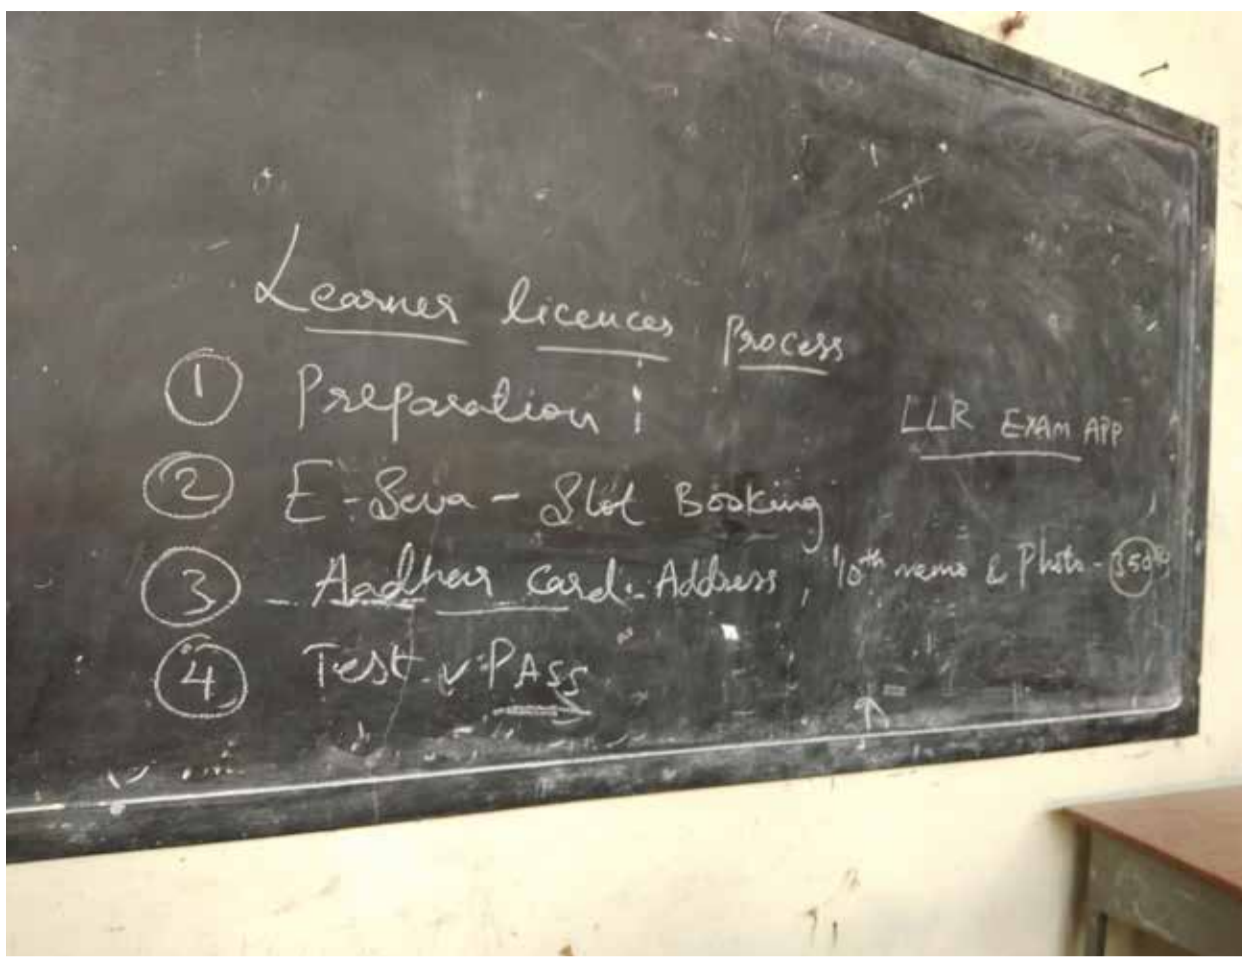 Learner licences Process
① Preparation :
LLR EXAM APP
② E-Seva - Slot Booking
③ Aadhar card:- Address, 10th memo & Photo - 350
④ Test ✓ PASS